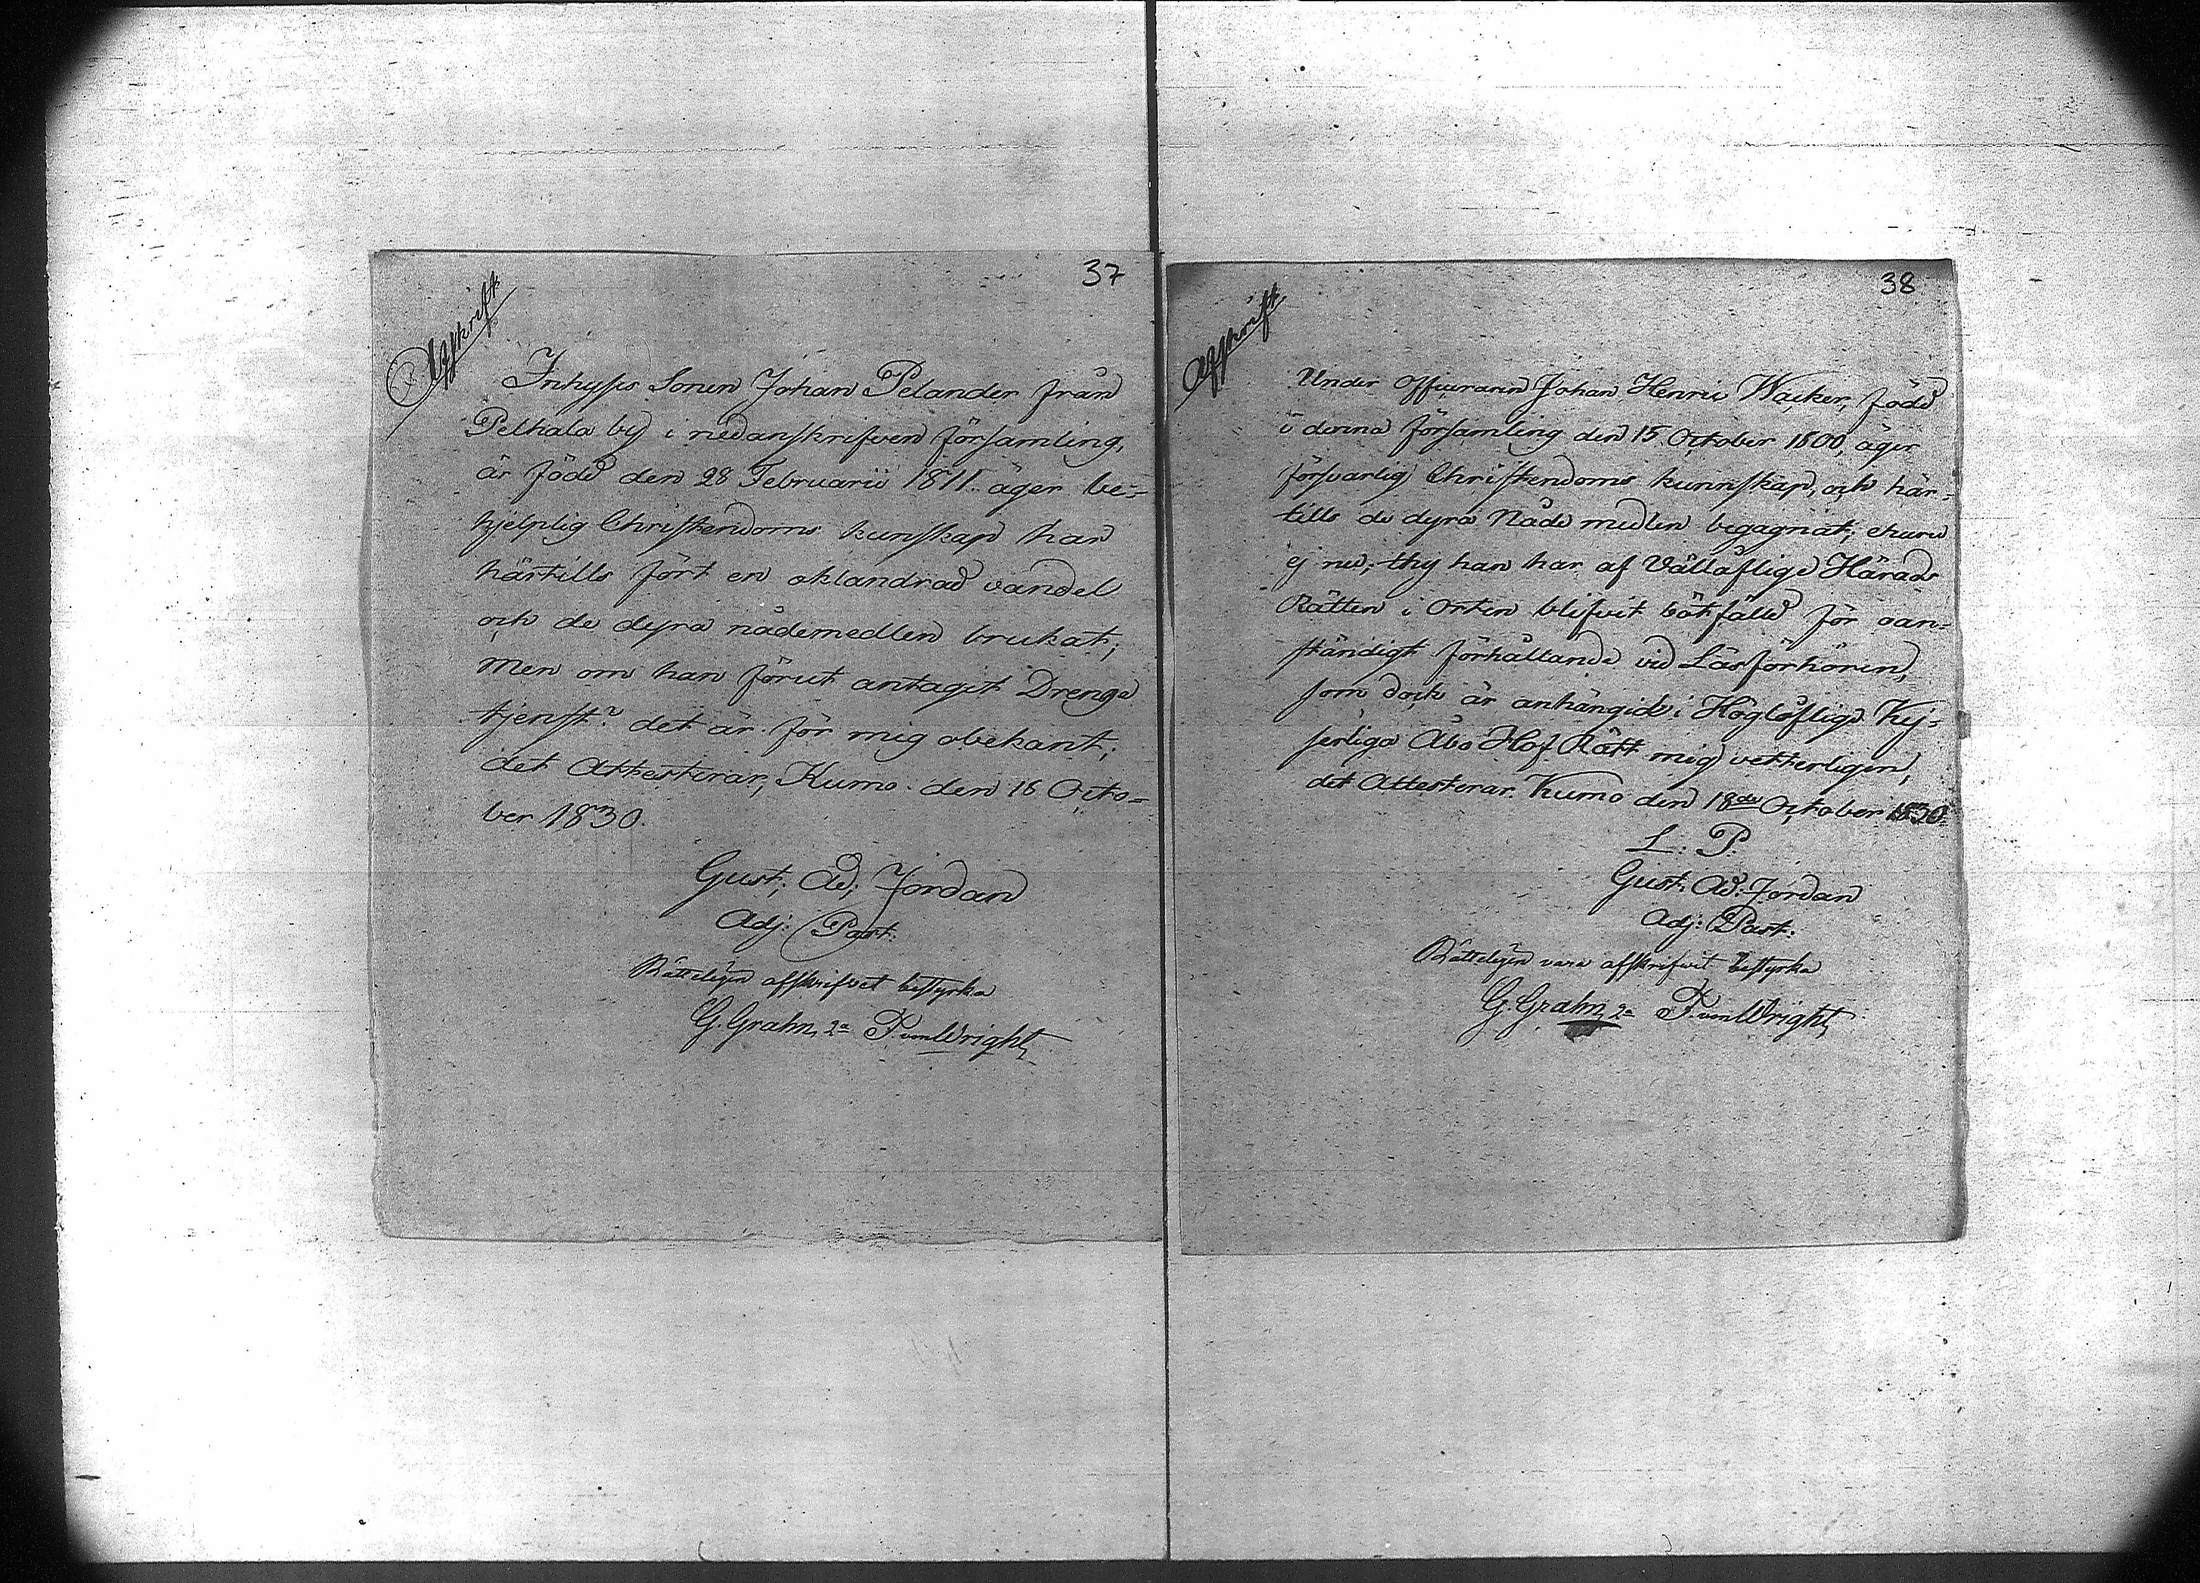 37
Afskrift
Inhyses Sonen Johan Pelander från
Pelhala by i nedanskrifven församling,
är född den 28 Februarii 1811. äger be-
hjelplig Christendoms kunskap har
härtills fört en oklandrad vandel
och de dyra nådemedlen brukat;
Men om han förut antagit Drenge
tjenst? det är för mig obekant;
det Attesterar, Kumo den 16 Octo-
ber 1830.
Gust. Ad. Jordan
Adj: Past:
Rätteligen afskrifvet bestyrka
G. Grahn 2a P. von Wright
38
Afskrift
Under officeraren Johan Henric Wacker, född
i denna församling den 15 October 1800, äger
försvarlig Christendoms kunnskap, och här-
tills de dyra Nåde medlen begagnat; ehuru
ej nu; thy han har af Vällåflige Härads
Rätten i orten blifvit bötfälld för oan-
ständigt förhållande vid Läsförhören,
som dock är anhängig i Höglåflige Kej-
serliga Åbo Hof Rätt mig vetterligen,
det Attesterar. Kumo den 18de October 1830.
L: P:
Gust: Ad: Jordan
Adj: Past:
Rätteligen vara afskrifvit bestyrka
G. Grahn 2a P. von Wright